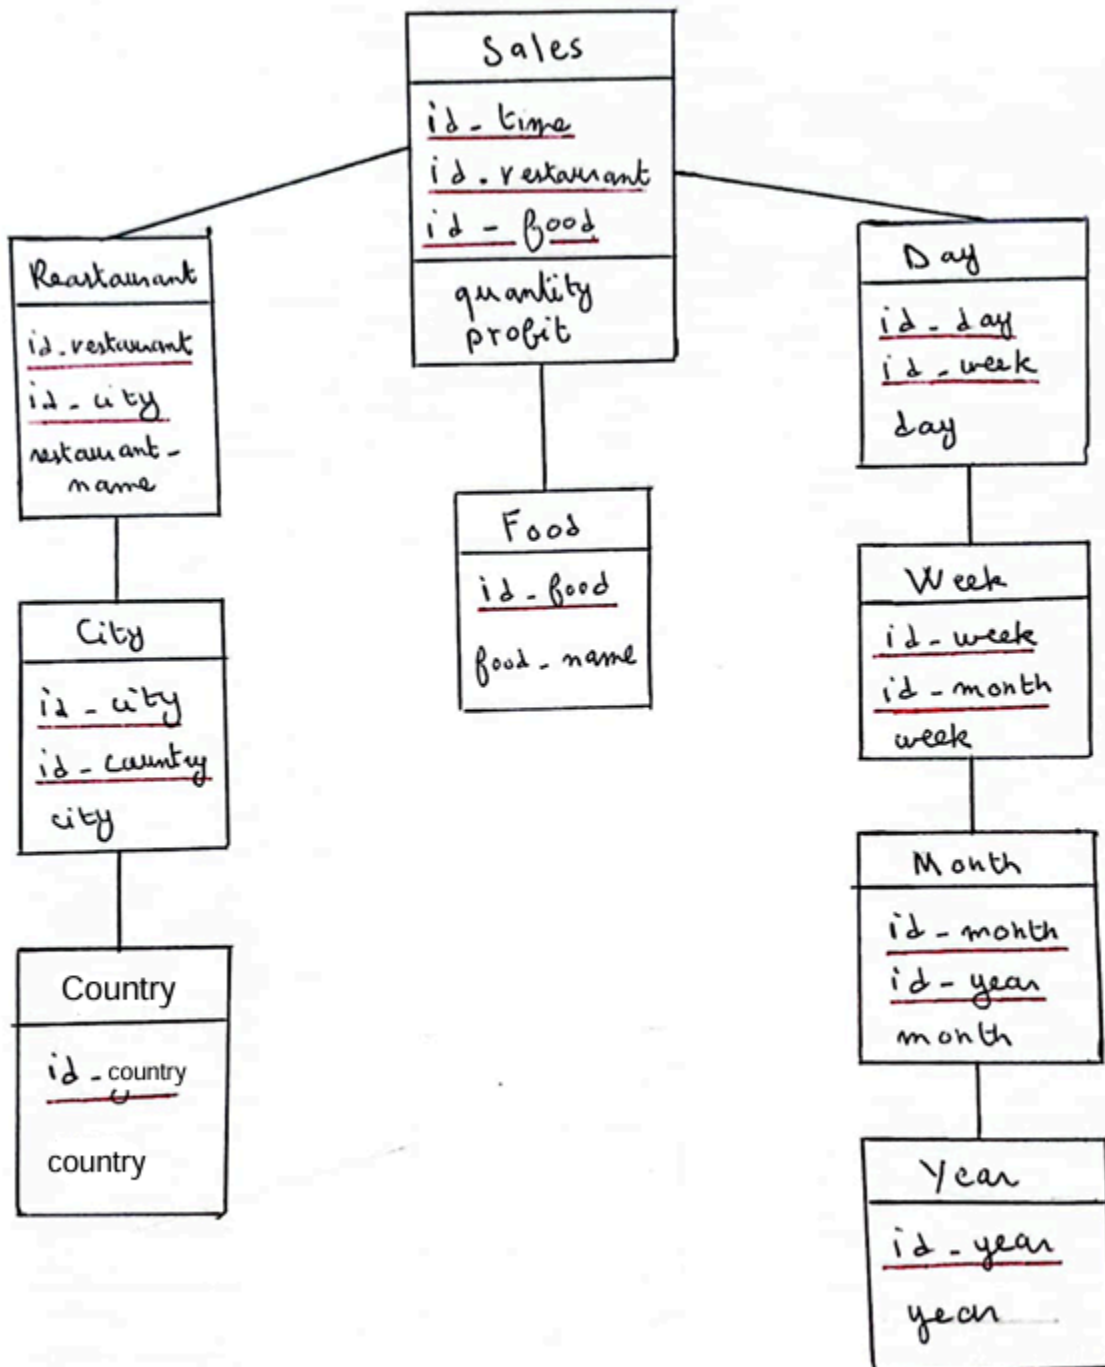 Sales
id_time
id_restaurant
id_food
quantity
profit
Reastaurant
id_restaurant
id_city
restaurant_
name
City
id_city
id_country
city
Country
id_country
country
Food
id_food
food_name
Day
id_day
id_week
day
Week
id_week
id_month
week
Month
id_month
id_year
month
Year
id_year
year